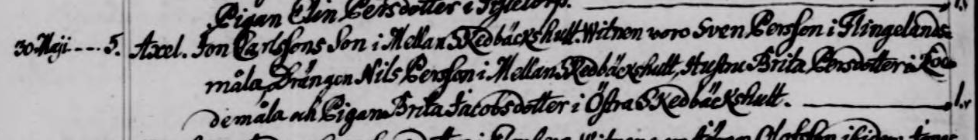 Pigan Elin Persdotter i
30 Maji .... 5. Axel. Jon Carlssons Son i Mellan Skedbäckshult. Witnen woro Sven Persson i Flingelands-
måla Drängen Nils Persson i Mellan Skedbäckshult, Hustru Brita Persdotter i
demåla och Pigan Brita Jacobsdotter i Östra Skedbäckshult. 1.